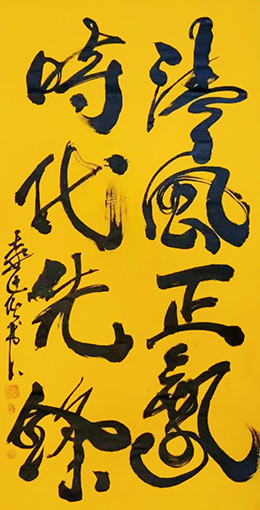 清风正氣
時代先鋒